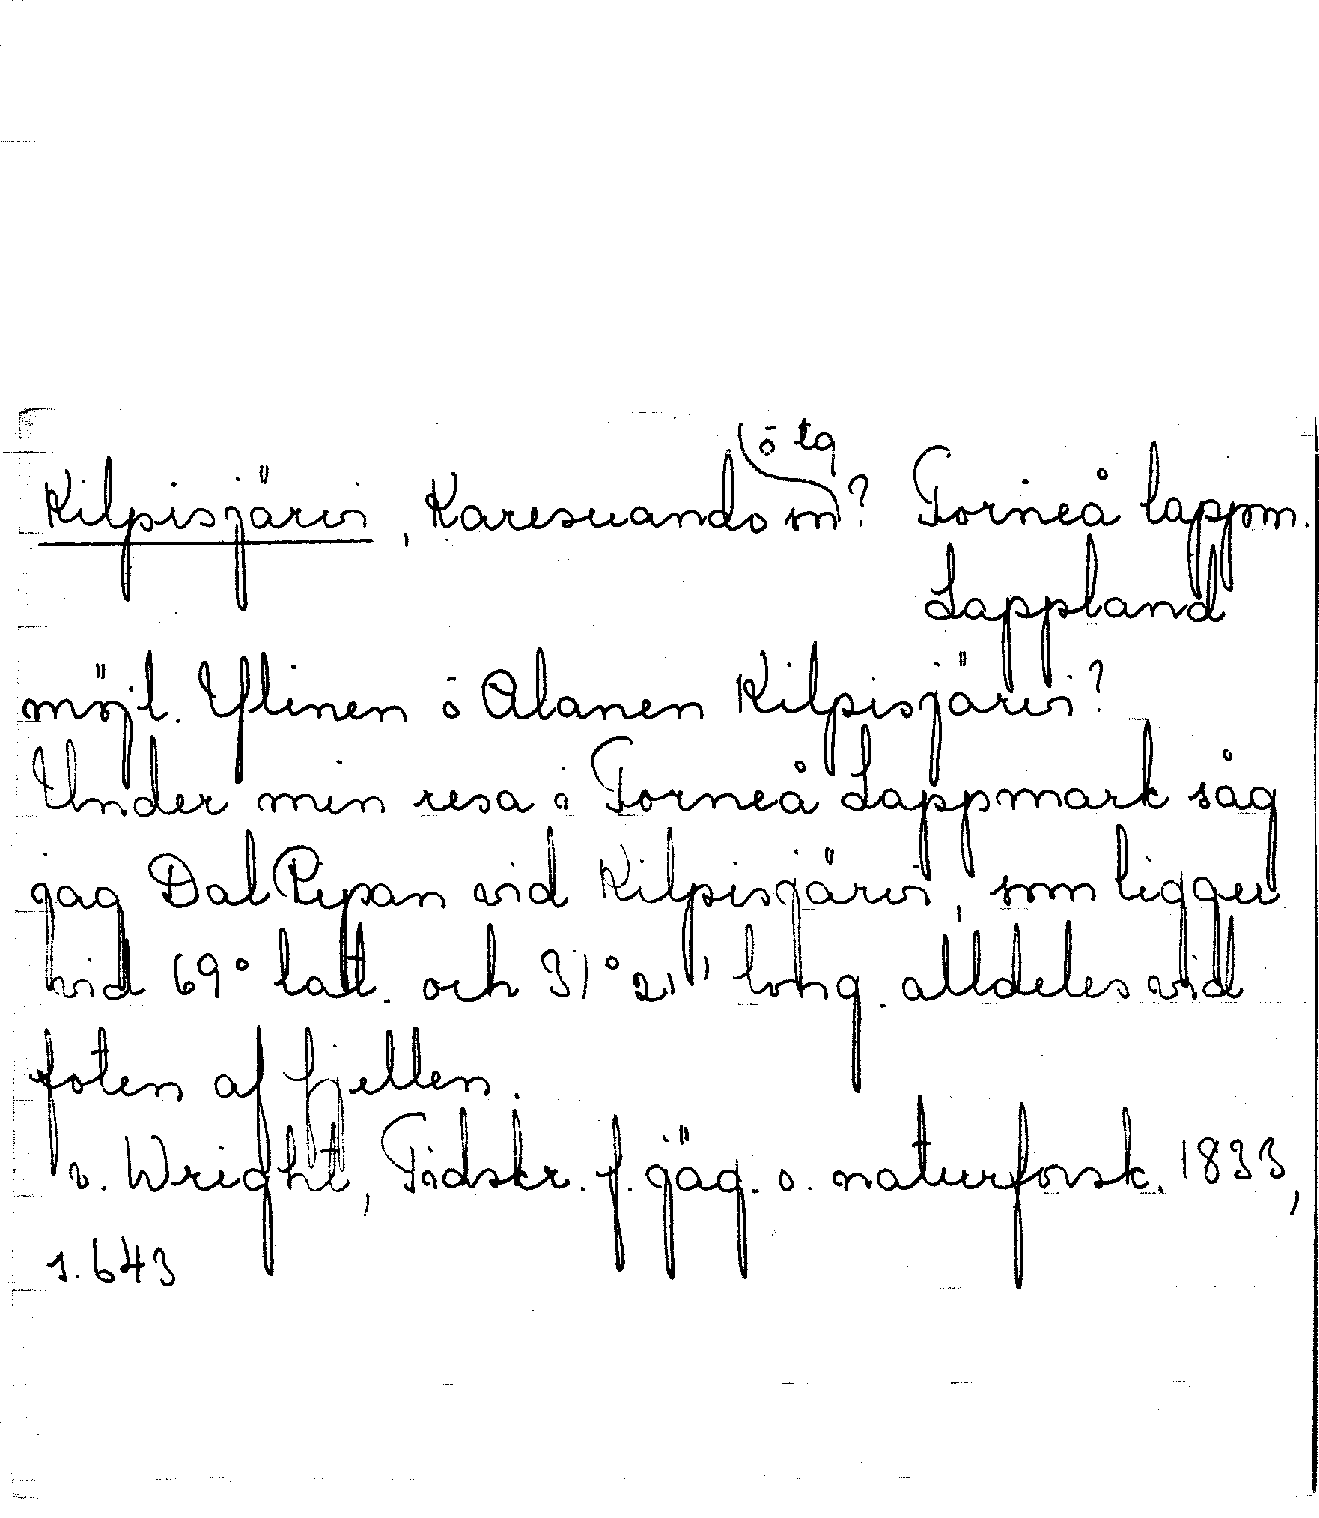 ō lg
Kilpisjärvi, Karesuando sn? Torneå lappm.
Lappland
möjl. Ylinen ō Alanen Kilpisjärvi?
Under min resa i Torneå Lappmark såg
jag Dal Ripan vid Kilpisjärvi, som ligger
vid 69° latt. och 31° 21' long. alldeles vid
foten af fjellen.
v. Wright, Tidskr. f. jäg. o. naturforsk. 1833,
s. 643